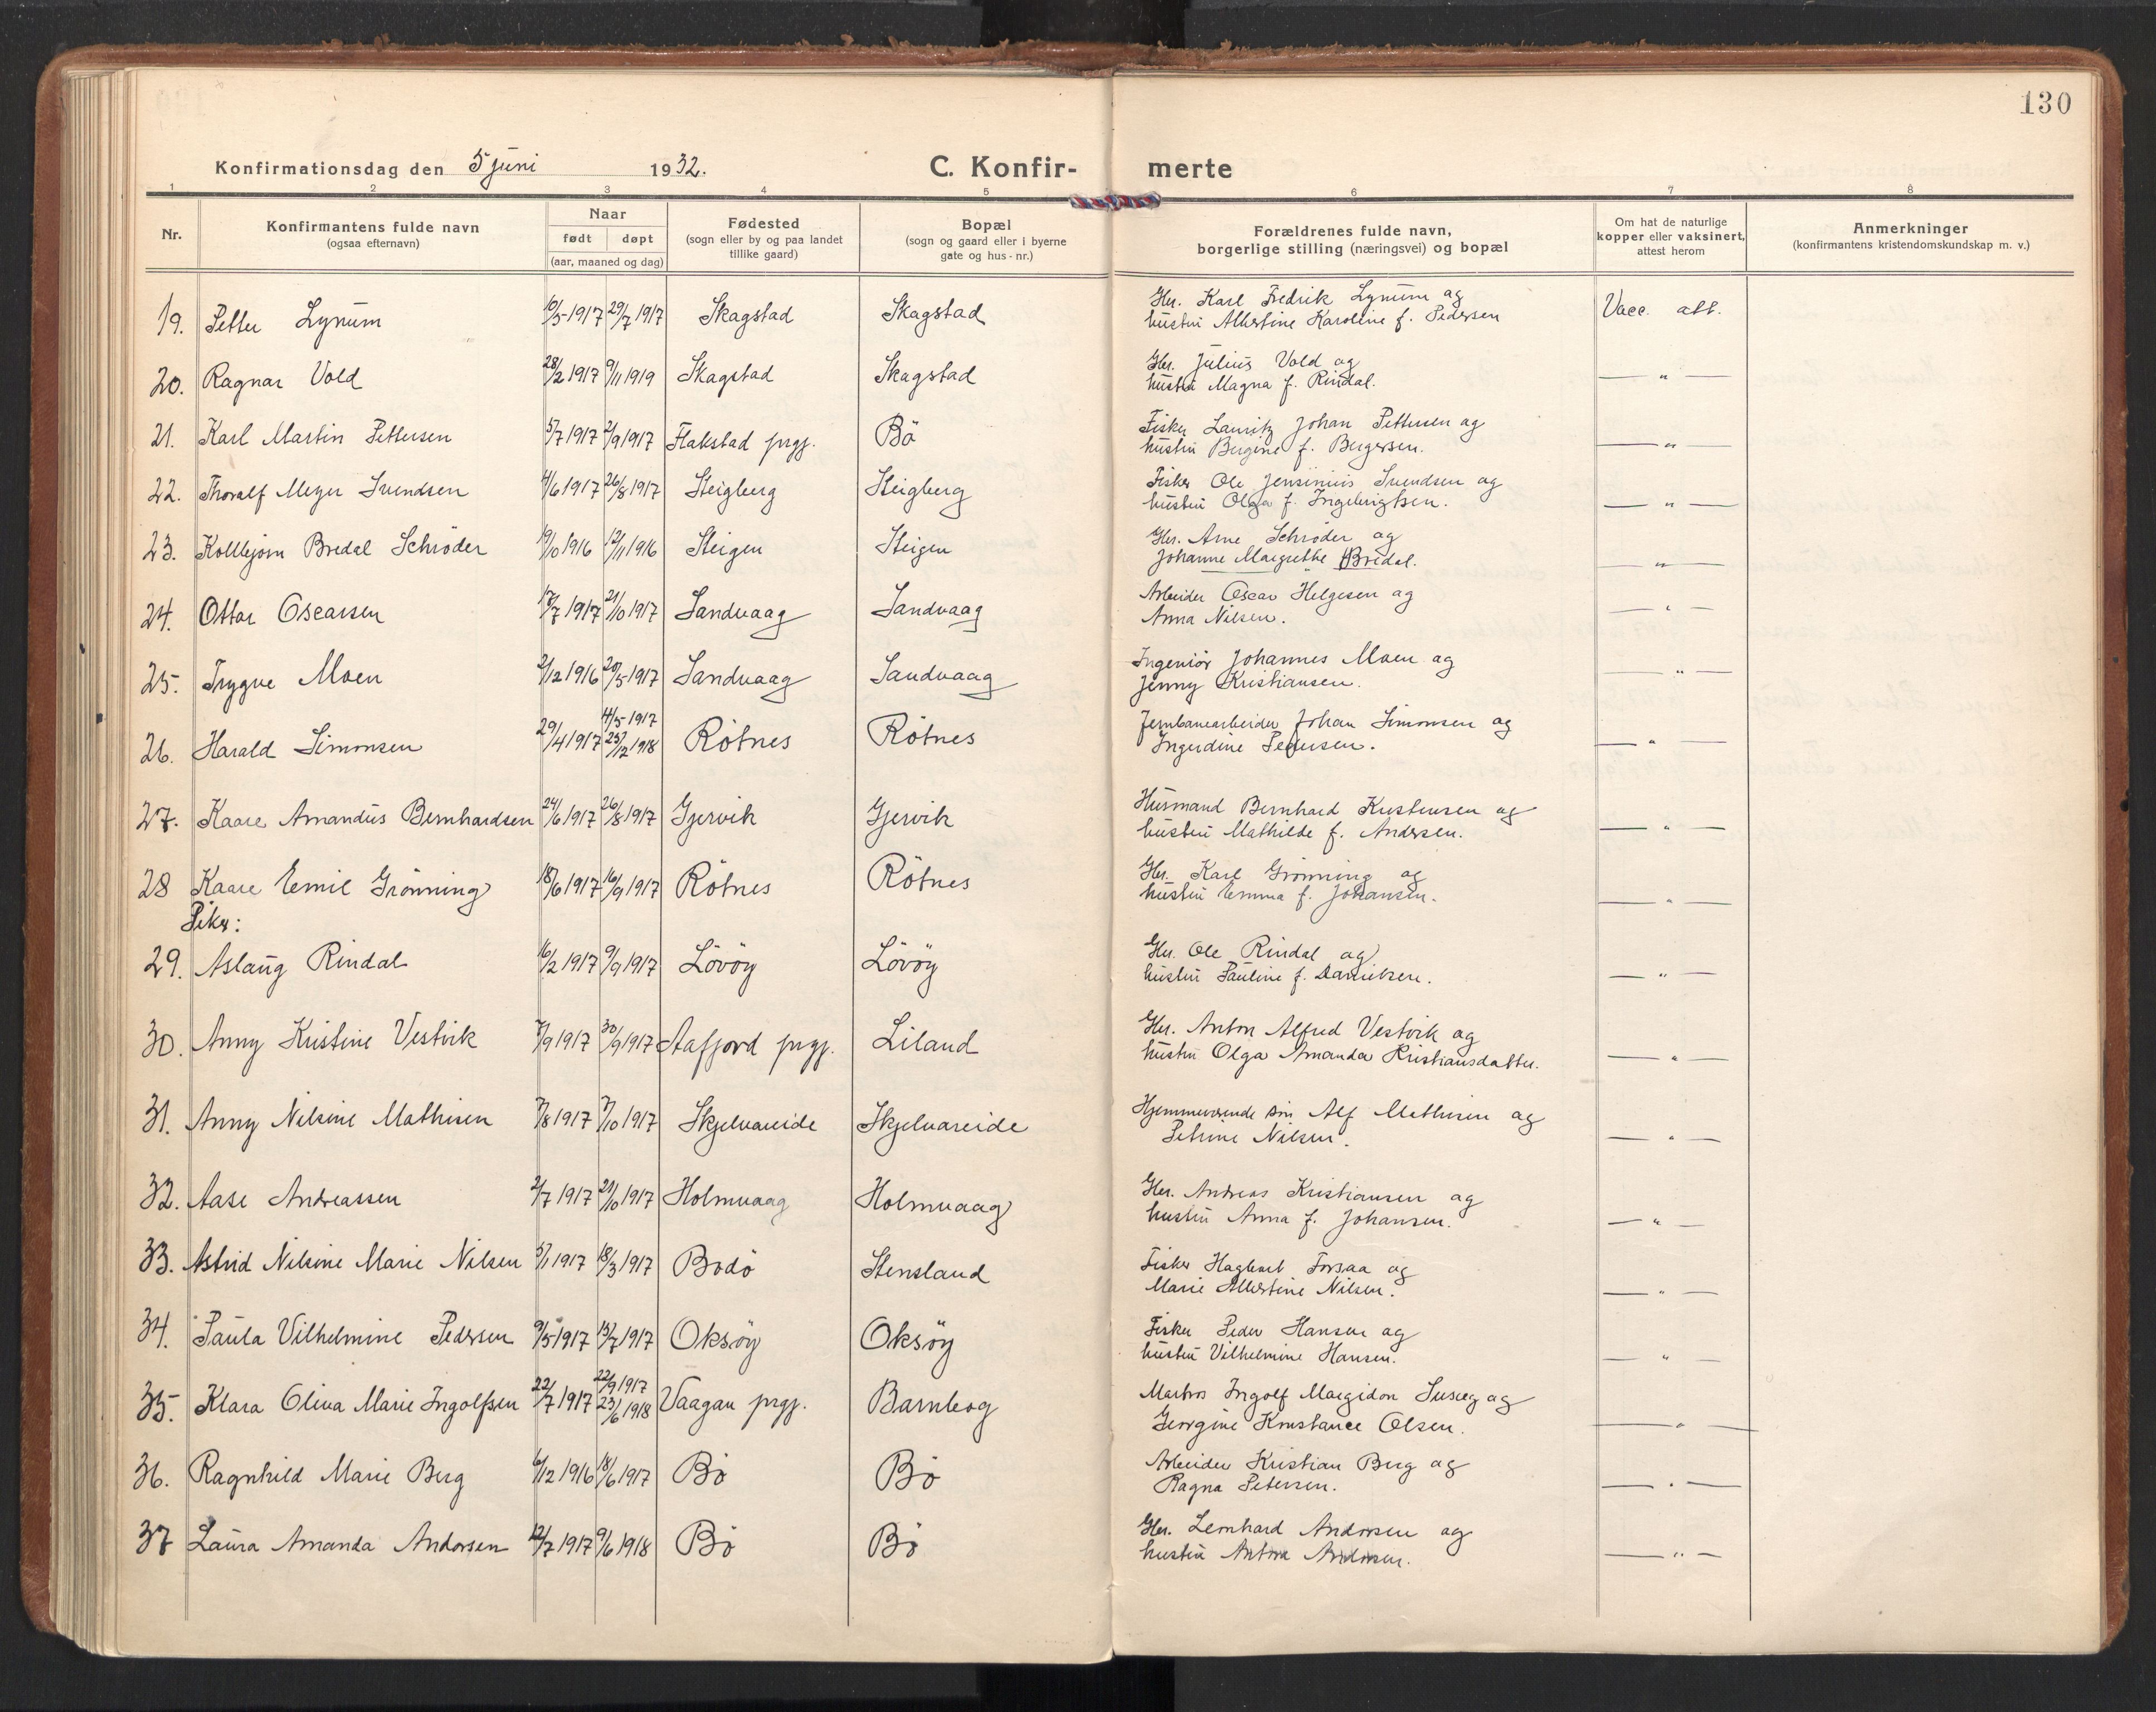 130
Konfirmationsdag den 5 juni 1932. C. Konfir- merte
1 2 3 4 5 6 7 8
Nr. Konfirmantens fulde navn (ogsaa efternavn) Naar født døpt (aar, maaned og dag) Fødested (sogn eller by og paa landet tillike gaard) Bopæl (sogn og gaard eller i byerne gate og hus-nr.) Forældrenes fulde navn, borgerlige stilling (næringsvei) og bopæl Om hat de naturlige kopper eller vaksinert, attest herom Anmerkninger (konfirmantens kristendomskundskap m. v.)
19. Petter Lynum 10/5 1917 29/7 1917 Skagstad Skagstad Gbr. Karl Fredrik Lynum og Vacc. att.
hustru Albertine Karoline f. Pedersen
20. Ragnar Vold 28/2 1917 9/11 1919 Skagstad Skagstad Gbr. Julius Vold og
hustru Magna f. Rindal. — " —
21. Karl Martin Pettersen 5/7 1917 2/9 1917 Flakstad prgj. Bö Fisker Lauritz Johan Pettersen og
hustru Bergine f. Bergersen. — " —
22. Thoralf Meyer Svendsen 4/6 1917 26/8 1917 Steigberg Steigberg Fisker Ole Jensinius Svendsen og
hustru Olga f. Ingebrigtsen. — " —
23. Kolbjørn Bredal Schrøder 19/10 1916 12/11 1916 Steigen Steigen Gbr. Arne Schrøder og
Johanne Margrethe Bredal. — " —
24. Ottar Oscarsen 17/7 1917 21/10 1917 Sandvaag Sandvaag Arbeider Oscar Helgesen og
Anna Nilsen. — " —
25. Trygve Moen 2/12 1916 20/5 1917 Sandvaag Sandvaag Ingeniør Johannes Moen og
Jenny Kristiansen. — " —
26. Harald Simonsen 29/4 1917 4/5 1917 25/12 1918 Rötnes Rötnes Jernbanearbeider Johan Simonsen og
Ingerdine Pedersen. — " —
27. Kaare Amandus Bernhardsen 24/6 1917 26/8 1917 Gjervik Gjervik Husmand Bernhard Kristensen og
hustru Mathilde f. Andersen. — " —
28 Kaare Emil Grönning 18/6 1917 16/9 1917 Rötnes Rötnes Gbr. Karl Grönning og
hustru Emma f. Johansen. — " —
Piker:
29. Aslaug Rindal 16/2 1917 9/9 1917 Lövöy Lövöy Gbr. Ole Rindal og
hustru Pauline f. Danielsen. — " —
30. Anny Kristine Vestvik 7/9 1917 30/9 1917 Aafjord prgj. Liland Gbr. Anton Alfred Vestvik og
hustru Olga Amanda Kristiansdatter. — " —
31. Anny Nilsine Mathisen 7/8 1917 7/10 1917 Skjelvareide Skjelvareide Hjemmeværende søn Alf Mathisen og
Petrine Nilsen. — " —
32. Aase Andreassen 2/7 1917 21/10 1917 Holmvaag Holmvaag Gbr. Andreas Kristiansen og
hustru Anna f. Johansen. — " —
33. Astrid Nilsine Marie Nilsen 5/1 1917 18/3 1917 Bodö Stensland Fisker Hagbart Forsaa og
Marie Albertine Nilsen. — " —
34. Paula Vilhelmine Pedersen 9/5 1917 15/7 1917 Oksöy Oksöy Fisker Peder Hansen og
hustru Vilhelmine Hansen. — " —
35. Klara Oliva Marie Ingolfsen 22/7 1917 22/9 1917 23/6 1918 Vaagan prgj. Barnbog Matros Ingolf Margidon og
Georgine Konstance Olsen. — " —
36. Ragnhild Marie Berg 6/12 1916 18/6 1917 Bö Bö Arbeider Kristian Berg og
Ragna Petersen. — " —
37 Laura Amanda Andorsen 12/7 1917 9/6 1918 Bö Bö Gbr. Lernhard Andorsen og
hustru Antona Andorsen. — " —